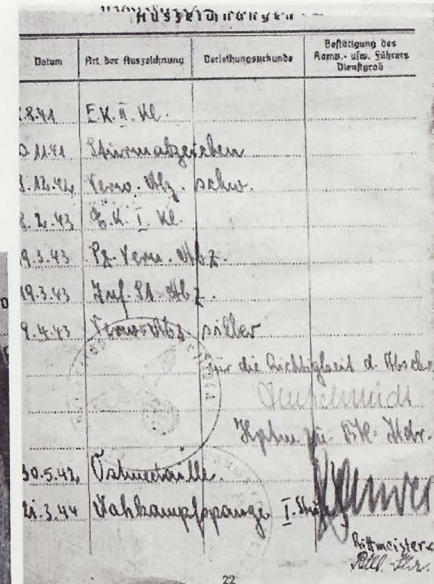 Auszeichnungen
Datum Art der Auszeichnung Verleihungsurkunde Bestätigung des Komp.- usw. Führers Dienstgrad
.8.41 E.K. II. Kl.
0.11.41 Sturmabzeichen
.12.42 Verw. Abz. schw.
.2.43 E.K. I. Kl.
9.3.43 Pz. Vern. Abz.
19.3.43 Inf. St. Abz.
9.4.43 Verw. Abz. silber
für die Richtigkeit d. Absch.
Hptm.
30.5.43 Ostmedaille.
21.3.44 Nahkampfspange I. Stufe
Rittmeister
22